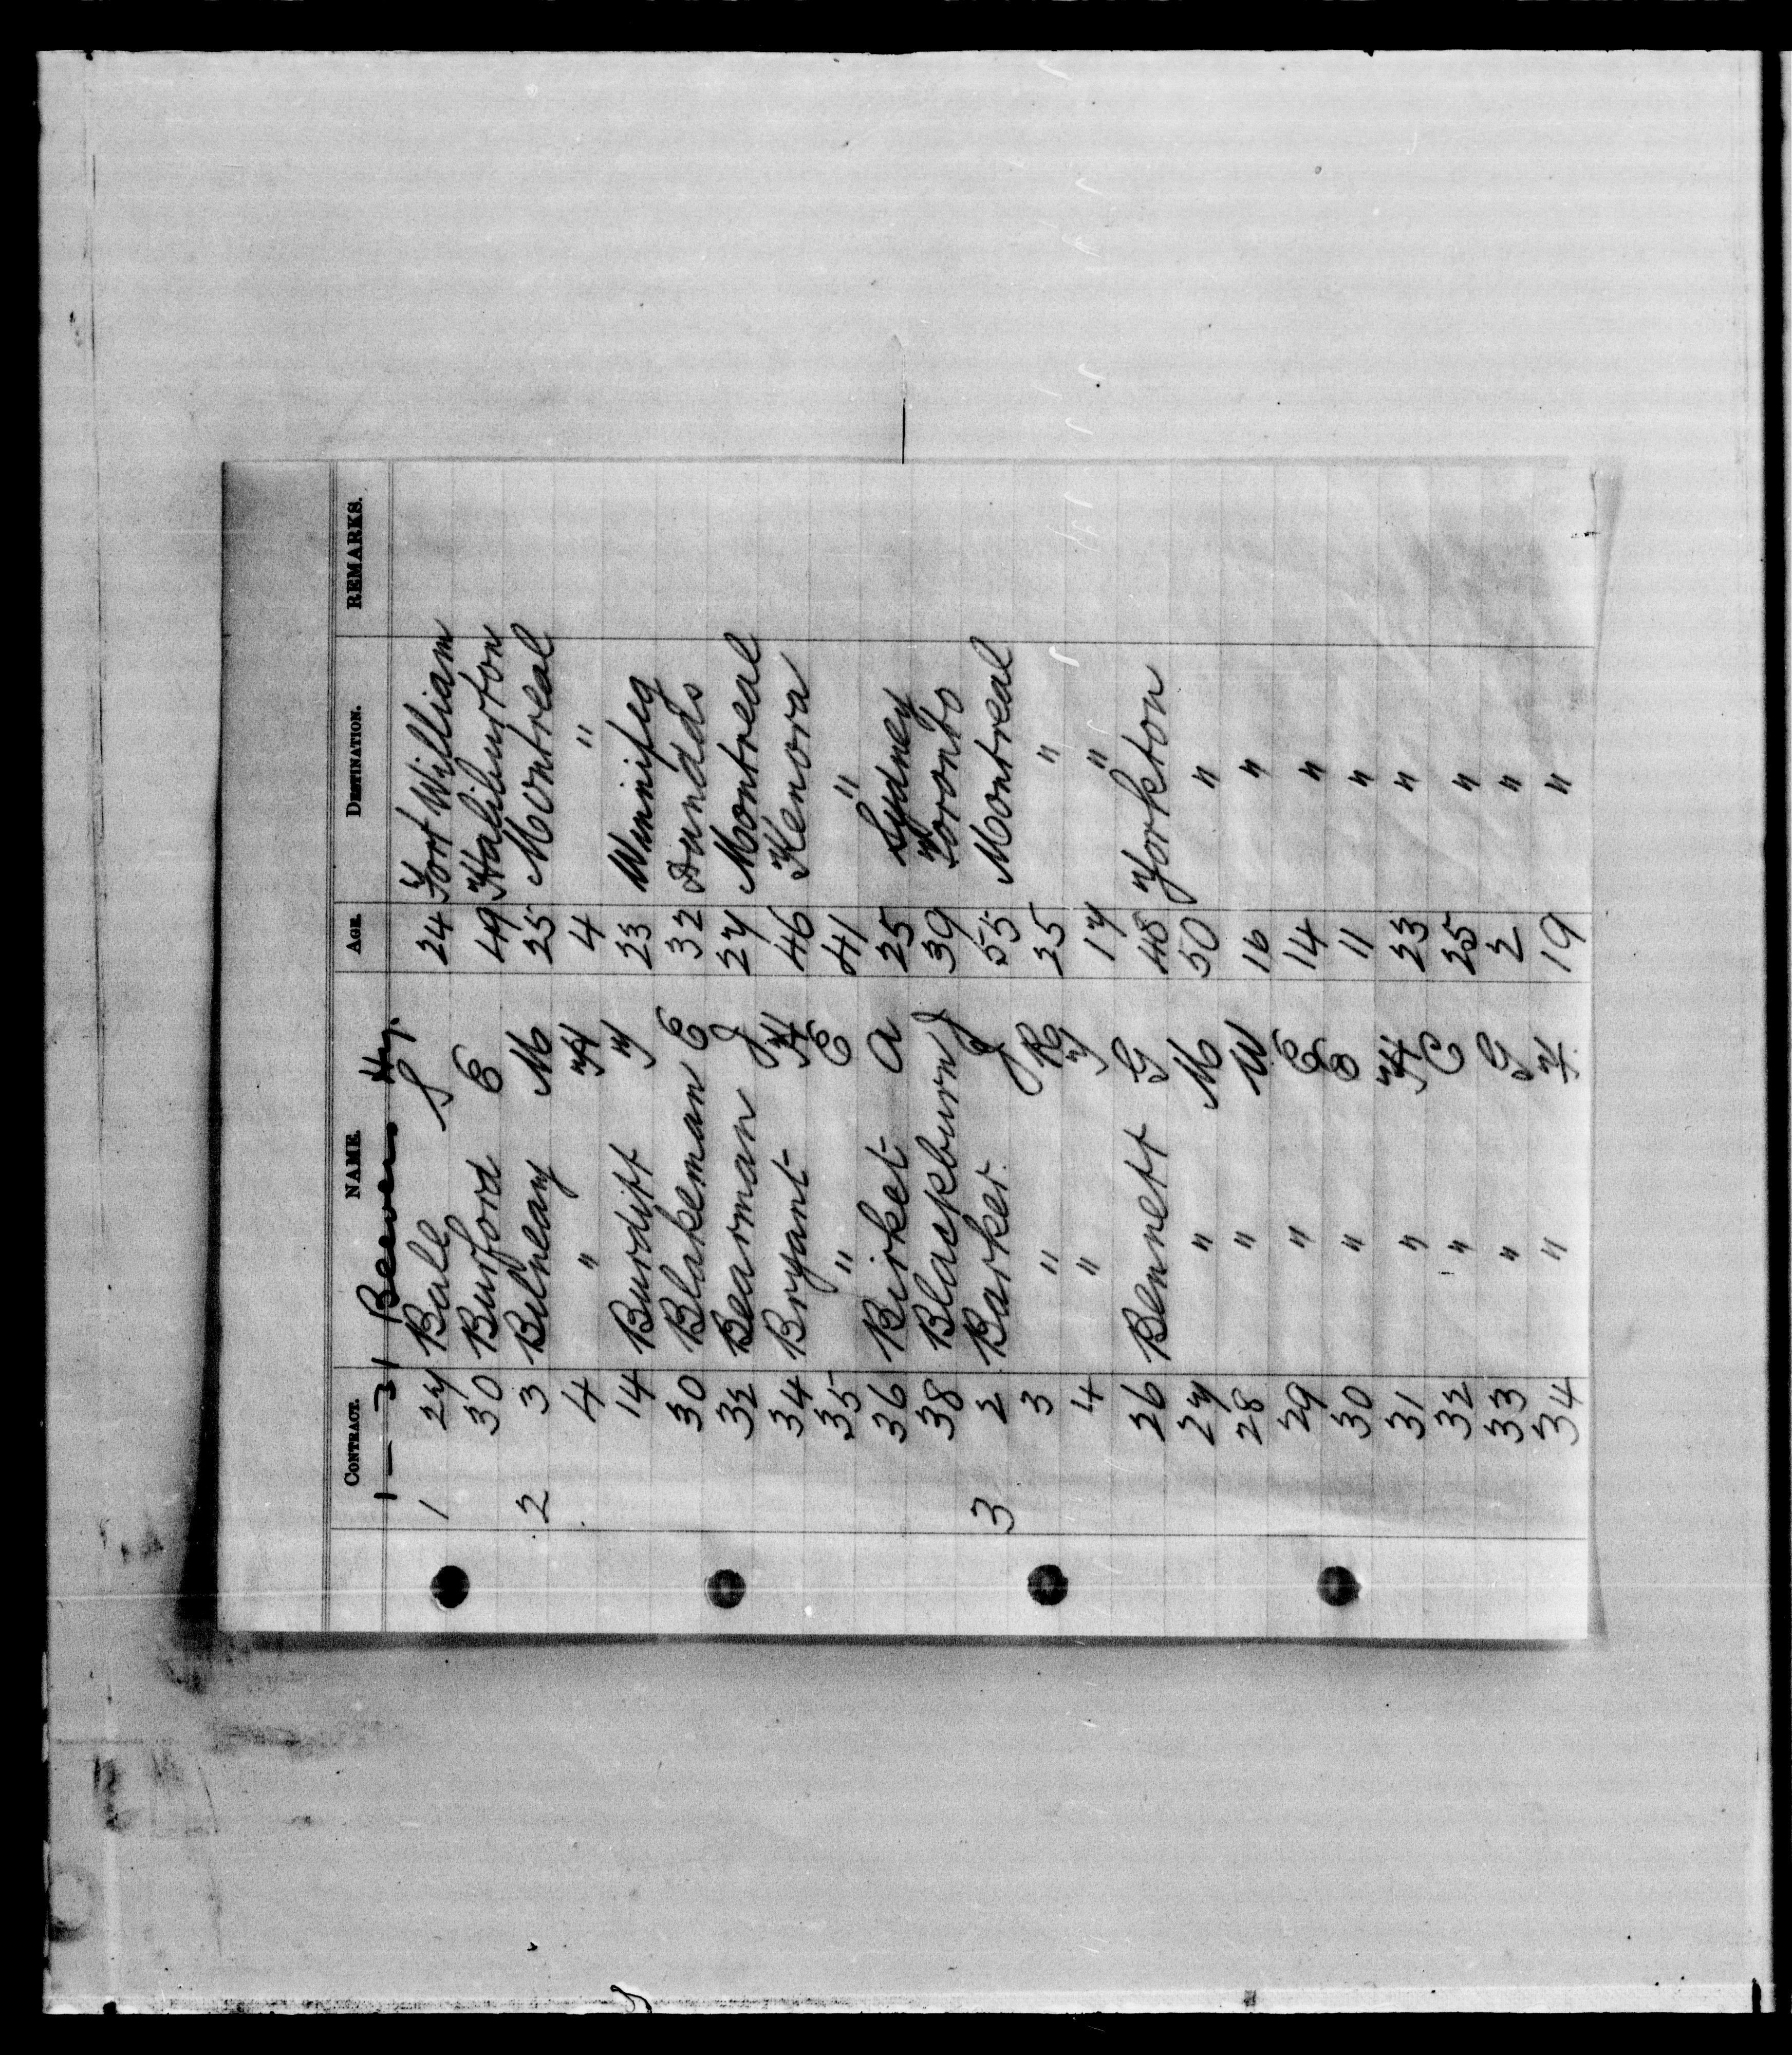 CONTRACT. NAME. AGE. DESTINATION. REMARKS.
1 — 31 Beeven Hy.
1 27 Ball S 24 Fort William
30 Burford E 49 Haliburton
2 3 Bilneay M 25 Montreal
4 " H 4 "
14 Burditt F 23 Winnipeg
30 Blakeman E 32 Dundads
32 Bearman J 27 Montreal
34 Bryant H 46 Kenora
35 " E 41 "
36 Birket A 25 Sydney
38 Blackburn J 39 Toronto
3 2 Barker J 55 Montreal
3 " R 25 "
4 " F 17 "
26 Bennett G 48 Yorkton
27 " M 50 "
28 " W 16 "
29 " E 14 "
30 " B 11 "
31 " H 23 "
32 " C 25 "
33 " G 2 "
34 " F. 19 "